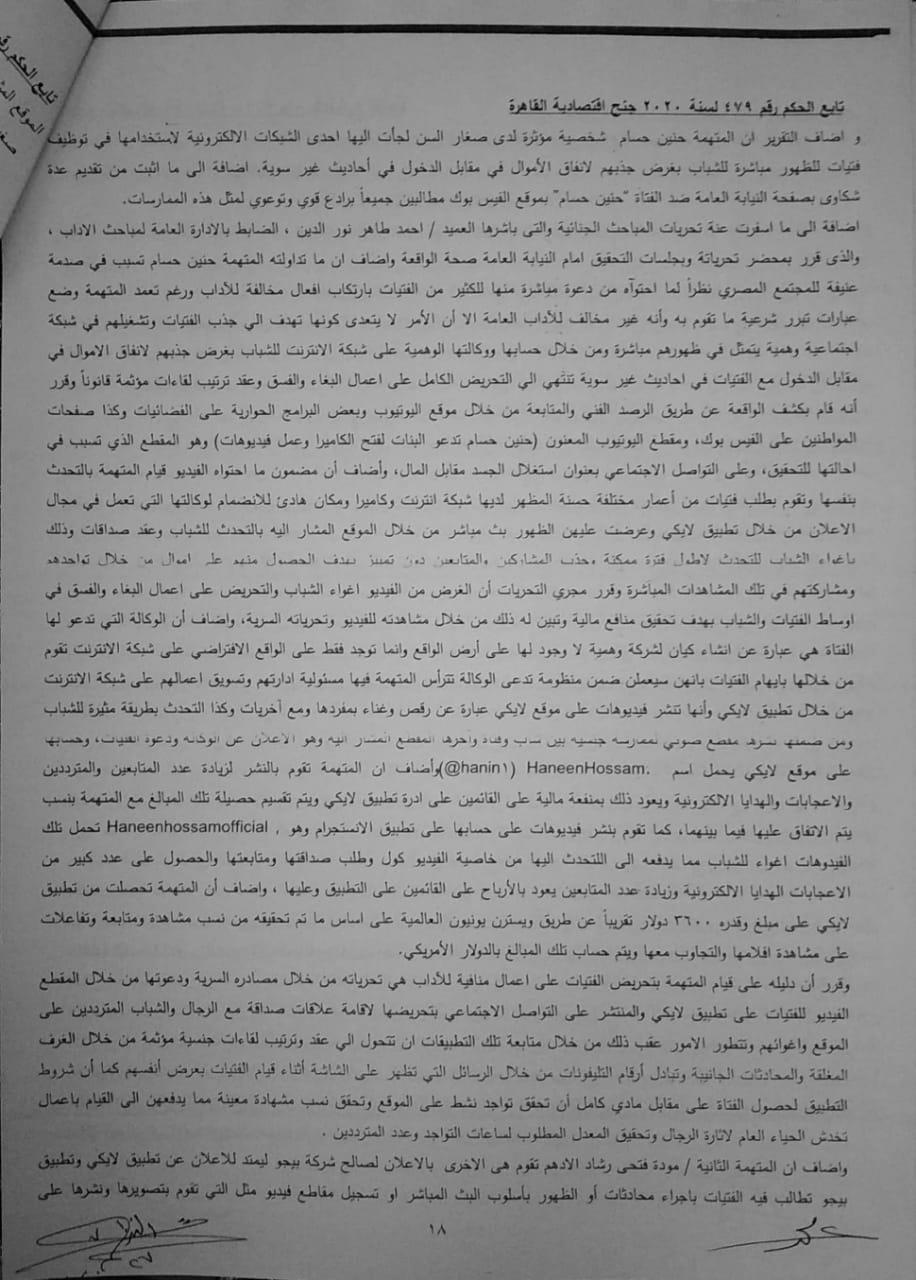 تابع الحكم رق
الموقع المث
صغا
تابع الحكم رقم ٤٧٩ لسنة ٢٠٢٠ جنح اقتصادية القاهرة
و اضاف التقرير ان المتهمة حنين حسام شخصية مؤثرة لدى صغار السن لجأت اليها احدى الشبكات الالكترونية لاستخدامها في توظيف
فتيات للظهور مباشرة للشباب بغرض جذبهم لانفاق الأموال في مقابل الدخول في أحاديث غير سوية. اضافة الى ما اثبت من تقديم عدة
شكاوى بصفحة النيابة العامة ضد الفتاة "حنين حسام" بموقع الفيس بوك مطالبين جميعاً برادع قوي وتوعوي لمثل هذه الممارسات.
اضافة الى ما اسفرت عنة تحريات المباحث الجنائية والتى باشرها العميد / احمد طاهر نور الدين ، الضابط بالادارة العامة لمباحث الاداب ،
والذى قرر بمحضر تحرياتة وبجلسات التحقيق امام النيابة العامة صحة الواقعة واضاف ان ما تداولته المتهمة حنين حسام تسبب في صدمة
عنيفة للمجتمع المصري نظراً لما احتوآه من دعوة مباشرة منها للكثير من الفتيات بارتكاب افعال مخالفة للآداب ورغم تعمد المتهمة وضع
عبارات تبرر شرعية ما تقوم به وأنه غير مخالف للآداب العامة الا أن الأمر لا يتعدى كونها تهدف الي جذب الفتيات وتشغيلهم في شبكة
اجتماعية وهمية يتمثل في ظهورهم مباشرة ومن خلال حسابها ووكالتها الوهمية على شبكة الانترنت للشباب بغرض جذبهم لانفاق الاموال في
مقابل الدخول مع الفتيات في احاديث غير سوية تنتهي الي التحريض الكامل على اعمال البغاء والفسق وعقد ترتيب لقاءات مؤثمة قانوناً وقرر
أنه قام بكشف الواقعة عن طريق الرصد الفني والمتابعة من خلال موقع اليوتيوب وبعض البرامج الحوارية على الفضائيات وكذا صفحات
المواطنين على الفيس بوك، ومقطع اليوتيوب المعنون (حنين حسام تدعو البنات لفتح الكاميرا وعمل فيديوهات) وهو المقطع الذي تسبب في
احالتها للتحقيق، وعلى التواصل الاجتماعي بعنوان استغلال الجسد مقابل المال، وأضاف أن مضمون ما احتواه الفيديو قيام المتهمة بالتحدث
بنفسها وتقوم بطلب فتيات من أعمار مختلفة حسنة المظهر لديها شبكة انترنت وكاميرا ومكان هادئ للانضمام لوكالتها التي تعمل في مجال
الاعلان من خلال تطبيق لايكي وعرضت عليهن الظهور بث مباشر من خلال الموقع المشار اليه بالتحدث للشباب وعقد صداقات وذلك
باغواء الشباب للتحدث لاطول فترة ممكنة وجذب المشاركين والمتابعين دون تمييز بهدف الحصول منهم على اموال من خلال تواجدهم
ومشاركتهم في تلك المشاهدات المباشرة وقرر مجري التحريات أن الغرض من الفيديو اغواء الشباب والتحريض على اعمال البغاء والفسق في
اوساط الفتيات والشباب بهدف تحقيق منافع مالية وتبين له ذلك من خلال مشاهدته للفيديو وتحرياته السرية، واضاف أن الوكالة التي تدعو لها
الفتاة هي عبارة عن انشاء كيان لشركة وهمية لا وجود لها على أرض الواقع وانما توجد فقط على الواقع الافتراضي على شبكة الانترنت تقوم
من خلالها بايهام الفتيات بانهن سيعملن ضمن منظومة تدعى الوكالة تترأس المتهمة فيها مسئولية ادارتهم وتسويق اعمالهم على شبكة الانترنت
من خلال تطبيق لايكي وأنها تنشر فيديوهات على موقع لايكي عبارة عن رقص وغناء بمفردها ومع آخريات وكذا التحدث بطريقة مثيرة للشباب
ومن ضمنها نشرها مقطع صوتي لممارسة جنسية بين شاب وفتاة وآخرها المقطع المشار اليه وهو الاعلان عن الوكالة ودعوة الفتيات، وحسابها
على موقع لايكي يحمل اسم .HaneenHossam (@hanin١)وأضاف ان المتهمة تقوم بالنشر لزيادة عدد المتابعين والمترددين
والاعجابات والهدايا الالكترونية ويعود ذلك بمنفعة مالية على القائمين على ادرة تطبيق لايكي ويتم تقسيم حصيلة تلك المبالغ مع المتهمة بنسب
يتم الاتفاق عليها فيما بينهما، كما تقوم بنشر فيديوهات على حسابها على تطبيق الانستجرام وهو , Haneenhossamofficial تحمل تلك
الفيدوهات اغواء للشباب مما يدفعه الى اللتحدث اليها من خاصية الفيديو كول وطلب صداقتها ومتابعتها والحصول على عدد كبير من
الاعجابات الهدايا الالكترونية وزيادة عدد المتابعين يعود بالأرباح على القائمين على التطبيق وعليها ، واضاف أن المتهمة تحصلت من تطبيق
لايكي على مبلغ وقدره ٣٦٠٠ دولار تقريباً عن طريق ويسترن يونيون العالمية على اساس ما تم تحقيقه من نسب مشاهدة ومتابعة وتفاعلات
على مشاهدة افلامها والتجاوب معها ويتم حساب تلك المبالغ بالدولار الأمريكي.
وقرر أن دليله على قيام المتهمة بتحريض الفتيات على اعمال منافية للآداب هي تحرياته من خلال مصادره السرية ودعوتها من خلال المقطع
الفيديو للفتيات على تطبيق لايكي والمنتشر على التواصل الاجتماعي بتحريضها لاقامة علاقات صداقة مع الرجال والشباب المترددين على
الموقع واغوائهم وتتطور الامور عقب ذلك من خلال متابعة تلك التطبيقات ان تتحول الي عقد وترتيب لقاءات جنسية مؤثمة من خلال الغرف
المغلقة والمحادثات الجانيبة وتبادل أرقام التليفونات من خلال الرسائل التي تظهر على الشاشة أثناء قيام الفتيات بعرض أنفسهم كما أن شروط
التطبيق لحصول الفتاة على مقابل مادي كامل أن تحقق تواجد نشط على الموقع وتحقق نسب مشهادة معينة مما يدفعهن الى القيام باعمال
تخدش الحياء العام لاثارة الرجال وتحقيق المعدل المطلوب لساعات التواجد وعدد المترددين .
واضاف ان المتهمة الثانية / مودة فتحى رشاد الادهم تقوم هى الاخرى بالاعلان لصالح شركة بيجو ليمتد للاعلان عن تطبيق لايكي وتطبيق
بيجو تطالب فيه الفتيات باجراء محادثات أو الظهور بأسلوب البث المباشر او تسجيل مقاطع فيديو مثل التي تقوم بتصويرها ونشرها على
١٨